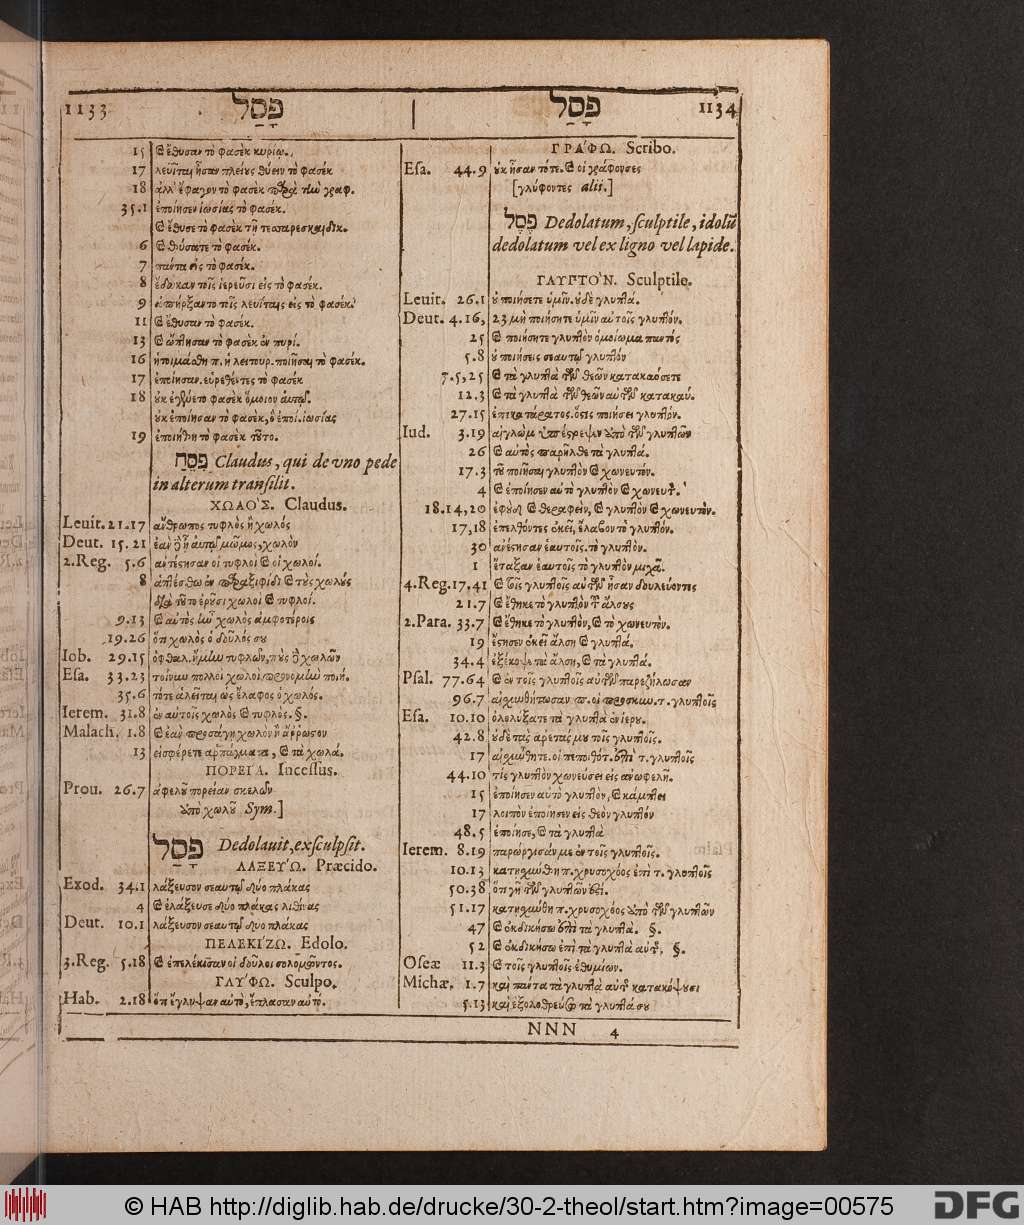 1133 פָּסַל
15 ἔθυσαν τὸ φασὲκ κυρίῳ.
17 λευῖται ἦσαν πλείους θύειν τὸ φασέκ
18 ἀλλ' ἔφαγον τὸ φασὲκ παρὰ τὴν γραφ.
35.1 ἐποίησεν ἰωσίας τὸ φασέκ.
ἔθυσε τὸ φασὲκ τῇ τεσσαρεσκαιδεκ.
6 θύσατε τὸ φασέκ.
7 πάντα εἰς τὸ φασέκ.
8 ἔδωκαν τοῖς ἱερεῦσι εἰς τὸ φασέκ.
9 ἀπήρξαντο τοῖς λευίταις εἰς τὸ φασέκ.
11 ἔθυσαν τὸ φασέκ.
13 ὤπτησαν τὸ φασὲκ ἐν πυρί.
16 ἡτοιμάσθη π. ἡ λειτουρ. ποιῆσαι τὸ φασέκ.
17 ἐποίησαν. εὑρεθέντες τὸ φασέκ
18 οὐκ ἐγένετο φασὲκ ὅμοιον αὐτῷ.
οὐκ ἐποίησαν τὸ φασὲκ, ὃ ἐποί. ἰωσίας
19 ἐποιήθη τὸ φασὲκ τοῦτο.
פִּסֵּחַ Claudus, qui de vno pede
in alterum transilit.
ΧΩΛΟ'Σ. Claudus.
Leuit. 21.17 ἄνθρωπος τυφλὸς ἢ χωλός
Deut. 15.21 ἐὰν δὲ ᾖ ἐν αὐτῷ μῶμος, χωλὸν
2.Reg. 5.6 ἀντέστησαν οἱ τυφλοὶ οἱ χωλοί.
8 ἁπτέσθω ἐν παραξιφίδι τοὺς χωλούς
διὰ τοῦτο ἐροῦσι χωλοὶ τυφλοί.
9.13 αὐτὸς ἦν χωλὸς ἀμφοτέροις
19.26 ὅτι χωλὸς ὁ δοῦλός σου
Iob. 29.15 ὀφθαλ. ἤμην τυφλῶν, ποὺς δὲ χωλῶν
Esa. 33.23 τοίνυν πολλοὶ χωλοὶ προνομὴν ποιή.
35.6 τότε ἁλεῖται ὡς ἔλαφος ὁ χωλός.
Ierem. 31.8 ἐν αὐτοῖς χωλὸς τυφλός. §.
Malach. 1.8 ἐὰν προσάγητε χωλὸν ἢ ἄρρωστον
13 εἰσφέρετε ἁρπάγματα, τὰ χωλά.
ΠΟΡΕΙ'Α. Incessus.
Prou. 26.7 ἀφελοῦ πορείαν σκελῶν
ὑπὸ χωλοῦ Sym.]
פָּסַל Dedolauit, exsculpsit.
ΛΑΞΕΥ'Ω. Præcido.
Exod. 34.1 λάξευσον σεαυτῷ δύο πλάκας
4 ἐλάξευσε δύο πλάκας λιθίνας
Deut. 10.1 λάξευσον σεαυτῷ δύο πλάκας
ΠΕΛΕΚΙ'ΖΩ. Edolo.
3.Reg. 5.18 ἐπελέκισαν οἱ δοῦλοι σολομῶντος.
ΓΛΥ'ΦΩ. Sculpo.
Hab. 2.18 ὅτι ἔγλυψαν αὐτὸ, ἔπλασαν αὐτό.
פָּסַל 1134
ΓΡΑ'ΦΩ. Scribo.
Esa. 44.9 οὐκ ἦσαν τότε. οἱ γράφοντες
[γλύφοντες alit.]
פֶּסֶל Dedolatum, sculptile, idolũ
dedolatum vel ex ligno vel lapide.
ΓΛΥΠΤΟ'Ν. Sculptile.
Leuit. 26.1 οὐ ποιήσετε ὑμῖν. οὐδὲ γλυπτά.
Deut. 4.16, 23 μὴ ποιήσητε ὑμῖν αὐτοῖς γλυπτόν.
25 ποιήσητε γλυπτὸν ὁμοίωμα παντός
5.8 οὐ ποιήσεις σεαυτῷ γλυπτόν
7.5,25 τὰ γλυπτὰ τῶν θεῶν κατακαύσετε
12.3 τὰ γλυπτὰ τῶν θεῶν αὐτῶν κατακαύ.
27.15 ἐπικατάρατος. ὅστις ποιήσει γλυπτόν.
Iud. 3.19 αἰγλὼμ ὑπέστρεψεν ἀπὸ τῶν γλυπτῶν
26 αὐτὸς παρῆλθε τὰ γλυπτά.
17.3 τοῦ ποιῆσαι γλυπτὸν χωνευτόν.
4 ἐποίησεν αὐτὸ γλυπτὸν χωνευτ.
18.14,20 ἐφοὺδ θεραφεὶν, γλυπτὸν χωνευτόν.
17,18 ἐπελθόντες ἐκεῖ, ἔλαβον τὸ γλυπτόν.
30 ἀνέστησαν ἑαυτοῖς. τὸ γλυπτόν.
1 ἔταξαν ἑαυτοῖς τὸ γλυπτὸν μιχά.
4.Reg. 17.41 τοῖς γλυπτοῖς αὐτῶν ἦσαν δουλεύοντες
21.7 ἔθηκε τὸ γλυπτὸν τοῦ ἄλσους
2.Para. 33.7 ἔθηκε τὸ γλυπτὸν, τὸ χωνευτόν.
19 ἔστησεν ἐκεῖ ἄλση γλυπτά.
34.4 ἐξέκοψε τὰ ἄλση, τὰ γλυπτά.
Psal. 77.64 ἐν τοῖς γλυπτοῖς αὐτῶν παρεζήλωσαν
96.7 αἰσχυνθήτωσαν π. οἱ προσκυν. τ. γλυπτοῖς
Esa. 10.10 ὀλολύξατε τὰ γλυπτὰ ἐν ἱερου.
42.8 οὐδὲ τὰς ἀρετάς μου τοῖς γλυπτοῖς.
17 αἰσχύνθητε. οἱ πεποιθότ. ἐπὶ τ. γλυπτοῖς
44.10 τίς γλυπτὸν χωνεύσει εἰς ἀνωφελῆ.
15 ἐποίησεν αὐτὸ γλυπτὸν, κάμπτει
17 λοιπὸν ἐποίησεν εἰς θεὸν γλυπτόν
48.5 ἐποίησε, τὰ γλυπτά
Ierem. 8.19 παρώργισάν με ἐν τοῖς γλυπτοῖς.
10.13 κατῃσχύνθη π. χρυσοχόος ἐπὶ τ. γλυπτοῖς
50.38 ὅτι γῆ τῶν γλυπτῶν ἐστί.
51.17 κατῃσχύνθη π. χρυσοχόος ἀπὸ τῶν γλυπτῶν
47 ἐκδικήσω ἐπὶ τὰ γλυπτά. §.
52 ἐκδικήσω ἐπὶ τὰ γλυπτὰ αὐτ. §.
Oseæ 11.3 τοῖς γλυπτοῖς ἐθυμίων.
Michæ. 1.7 καὶ πάντα τὰ γλυπτὰ αὐτ. κατακόψουσι
5.13 καὶ ἐξολοθρεύσω τὰ γλυπτά σου
NNN 4
© HAB http://diglib.hab.de/drucke/30-2-theol/start.htm?image=00575
DFG